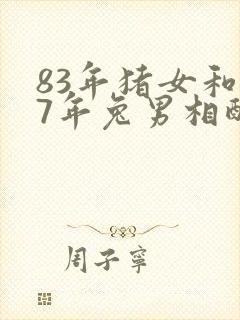 83年猪女和
7年兔男相配
周子寧